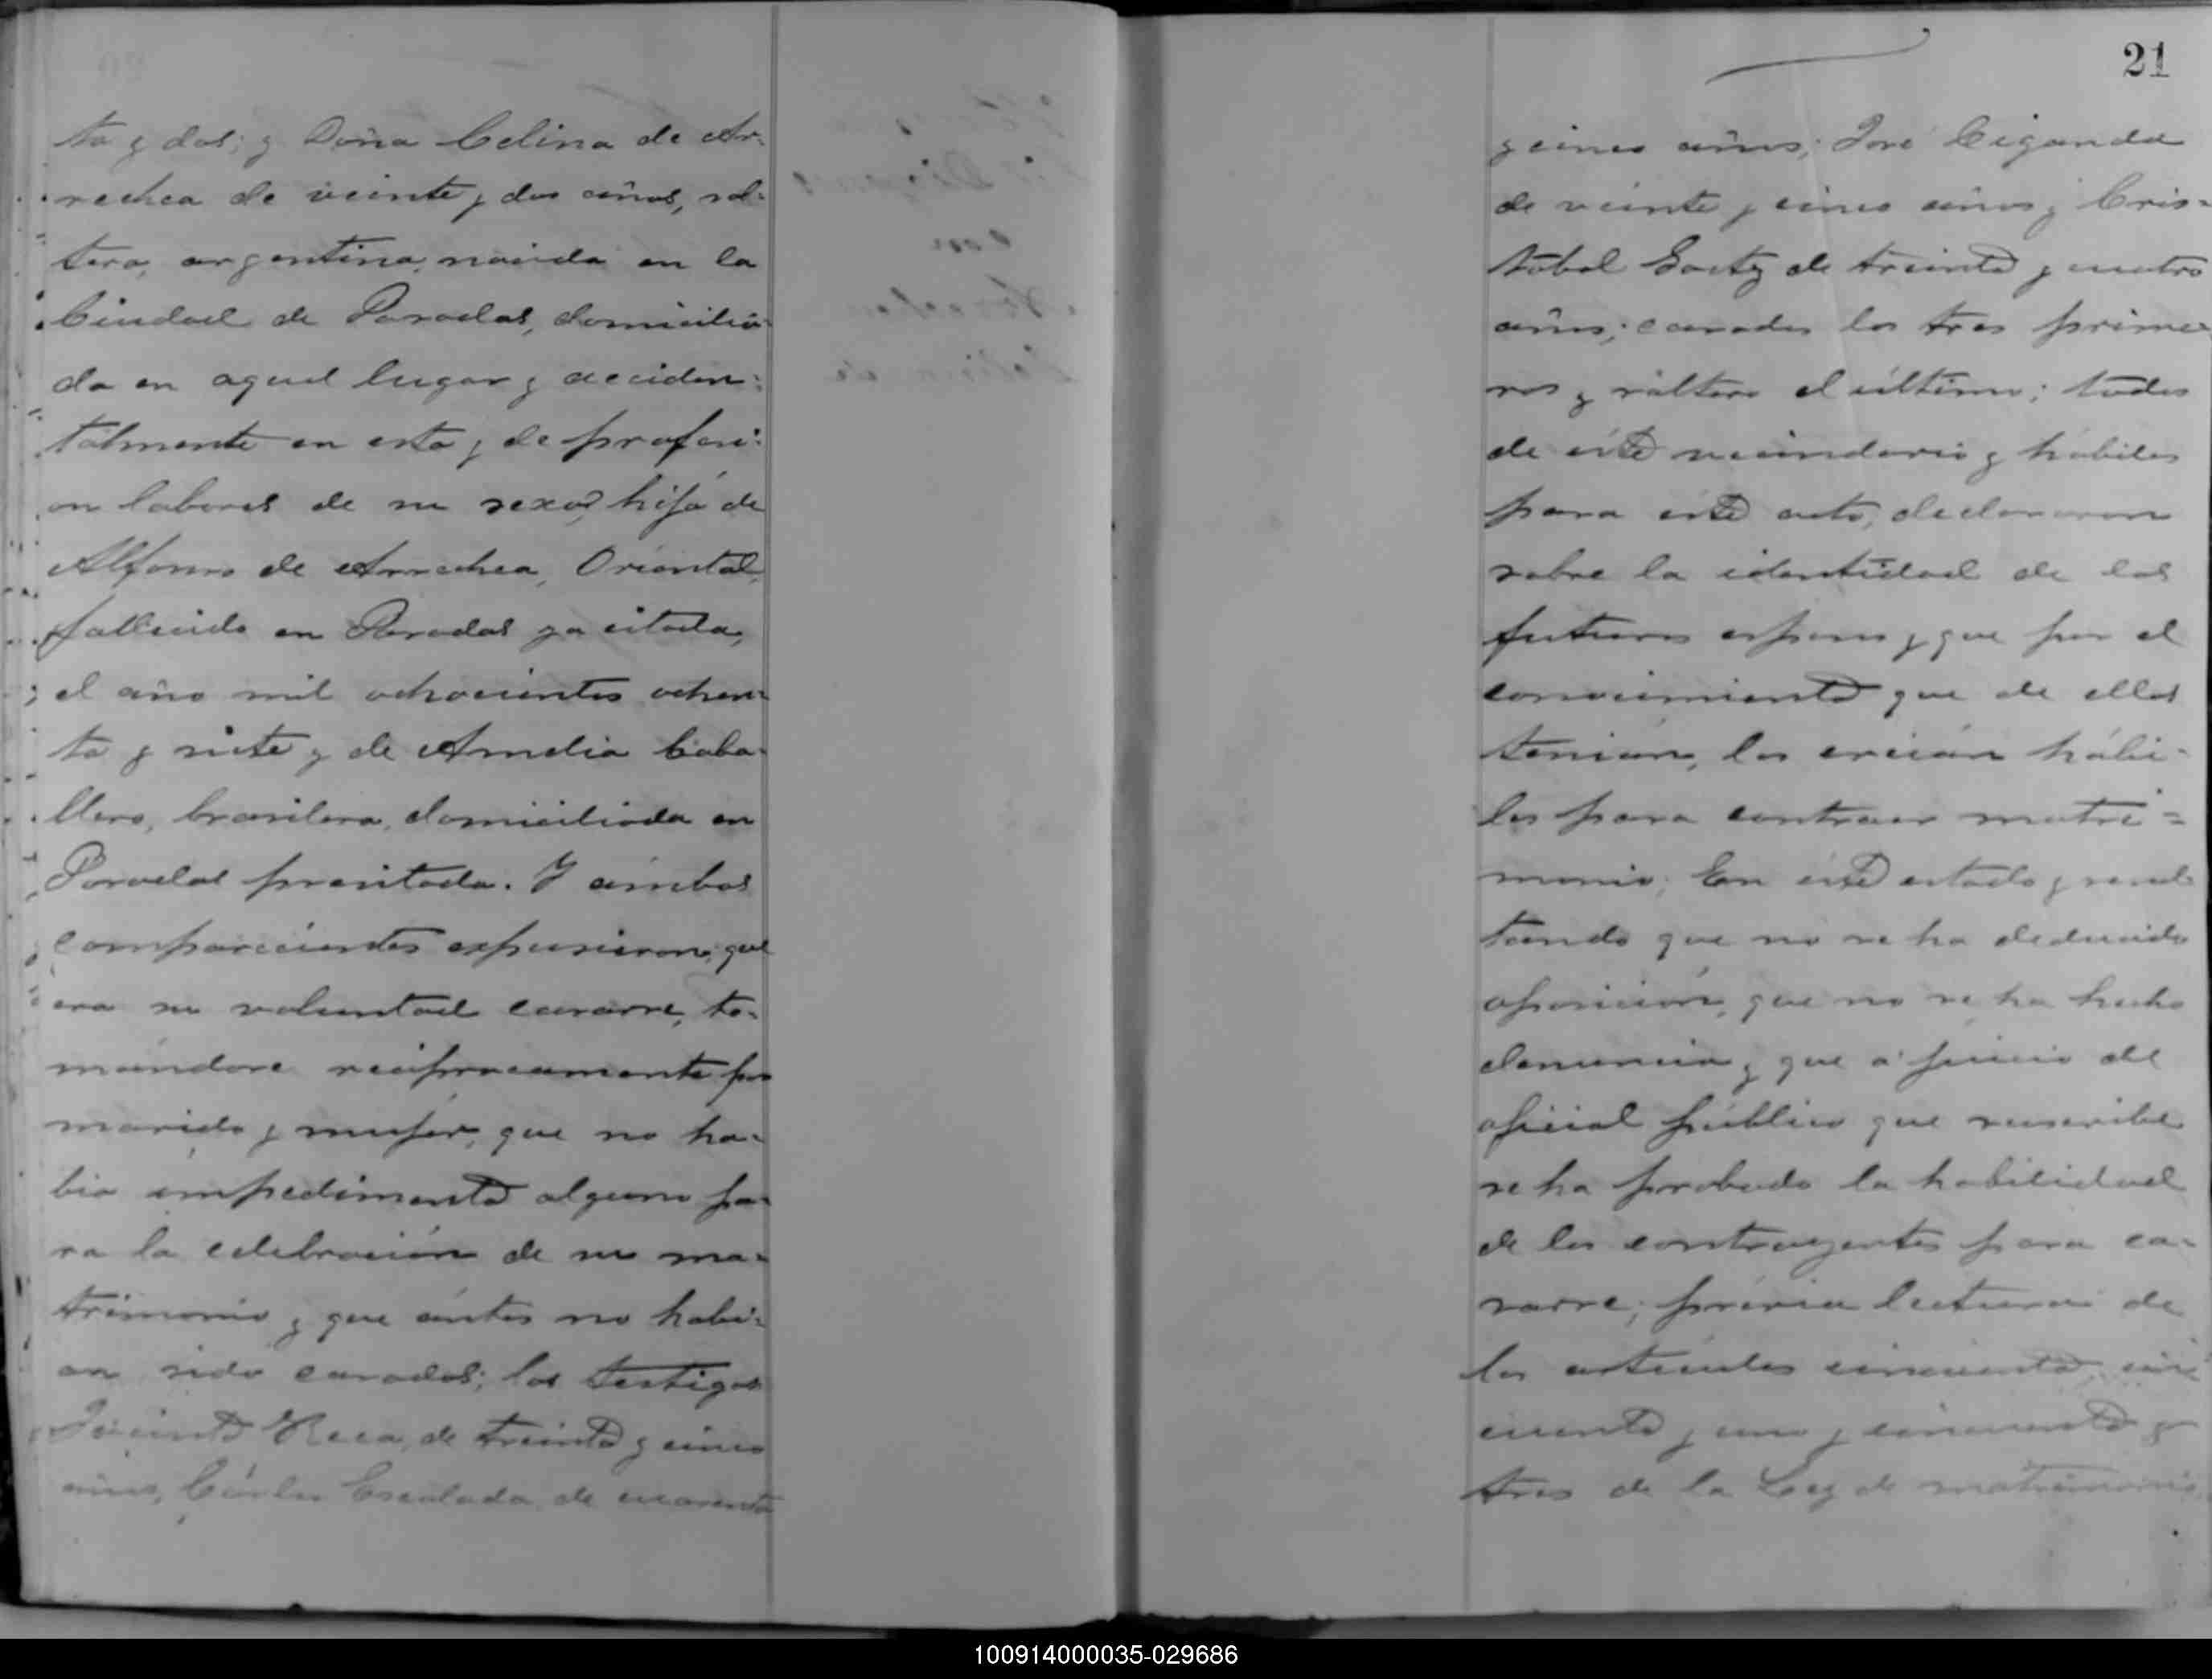 ta y dos; y Doña Celina de Ar-
rechea de veinte y dos años, sol-
tera, argentina, nacida en la
Ciudad de Posadas, domicilia-
da en aquel lugar y acciden-
talmente en esta y de profesi-
on labores de su sexo, hija de
Alfonso de Arrechea, Oriental,
fallecido en Posadas ya citada,
el año mil ochocientos ochen-
ta y siete y de Amelia Caba-
llero, brasilera, domiciliada en
Posadas precitada. Y ámbos
comparecientes expusieron: que
era su voluntad casarse, to-
mándose reciprocamente por
marido y mujer, que no ha-
bia impedimento alguno pa-
ra la celebración de su ma-
trimonio y que ántes no habi-
an sido casados; los testigos
Jacinto Roca, de treinta y cinco
años, Cárlos Escalada de cuarenta
21
y cinco años; José Ciganda
de veinte y cinco años y Cris-
tobal de treinta y cuatro
años; casados los tres prime-
ros y sóltero el último; todos
de éste vecindario y hábiles
para éste acto, declararon
sobre la identidad de los
futuros esposos y que por el
conocimiento que de ellos
tenian, los creian hábi-
les para contraer matri-
monio. En éste estado y resul-
tando que no se ha deducido
oposicion, que no se ha hecho
denuncia y que a juicio del
oficial público que suscribe
se ha probado la habilidad
de los contrayentes para ca-
sarse; prévia lectura de
los articulos cincuenta, cin-
cuenta y uno y cincuenta y
tres de la Ley de matrimonio
100914000035-029686